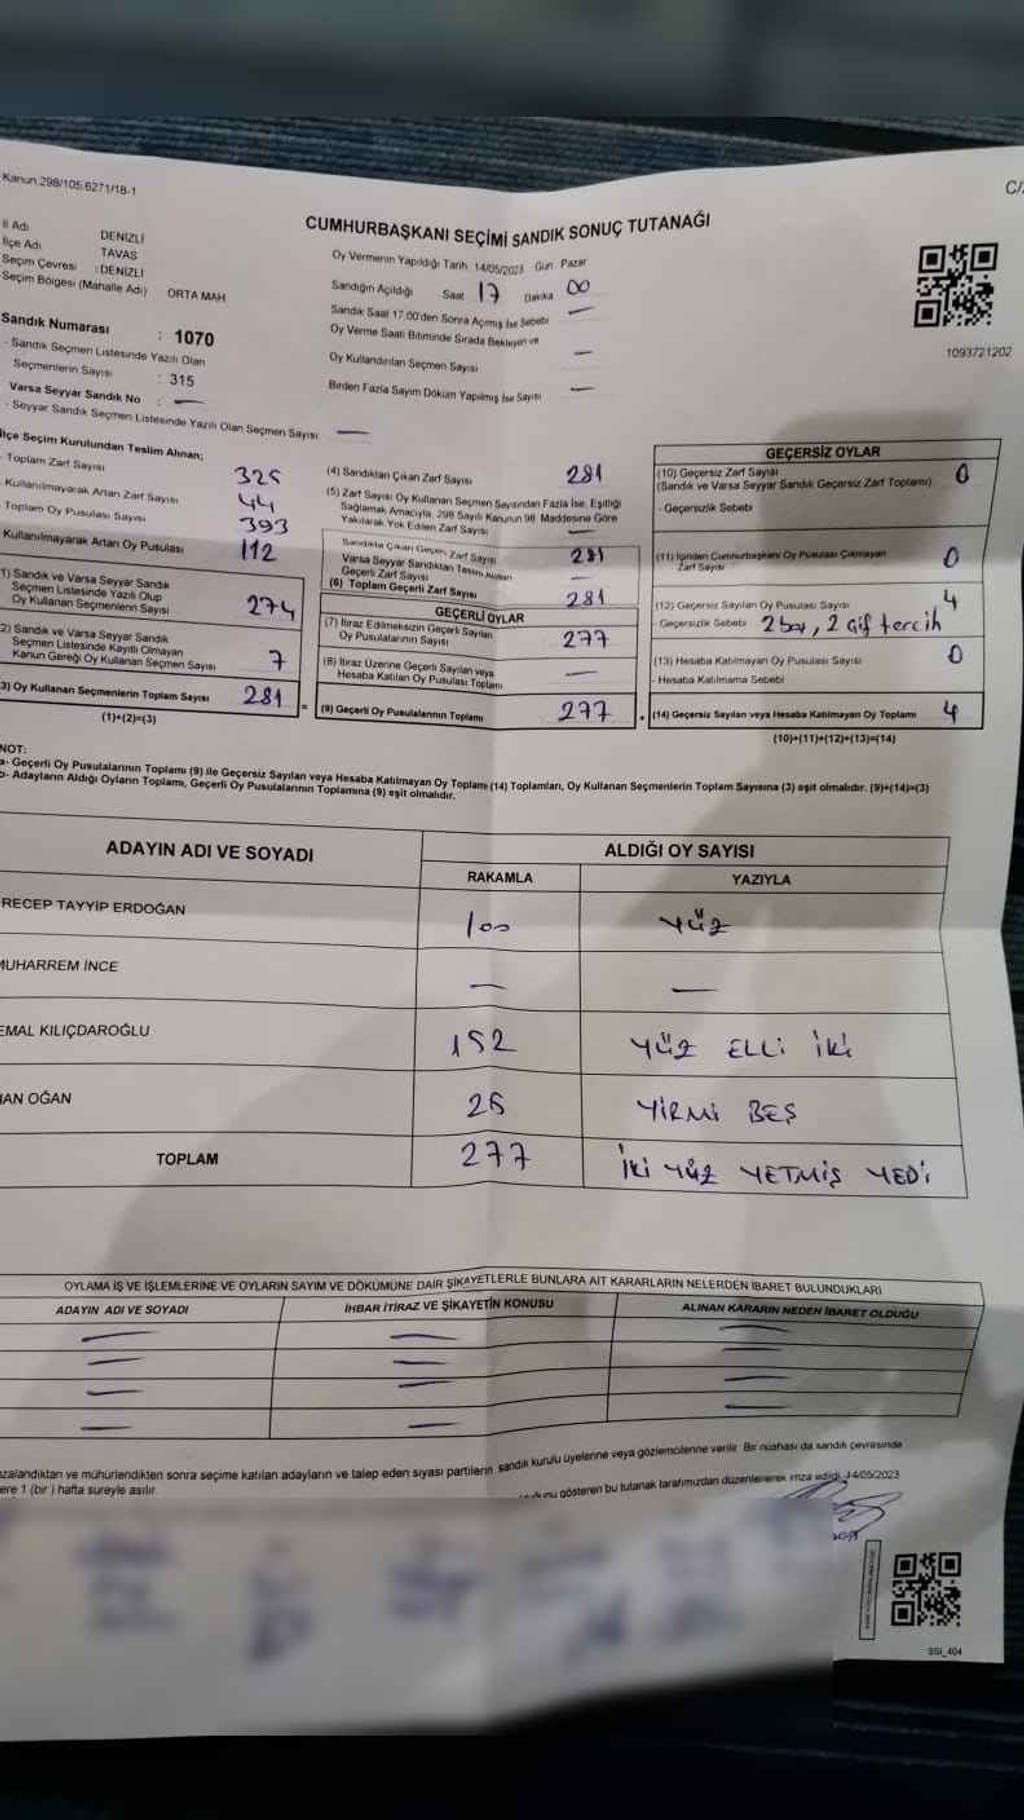 Kanun.298/105.6271/18-1
C/
CUMHURBAŞKANI SEÇİMİ SANDIK SONUÇ TUTANAĞI
İl Adı DENİZLİ
İlçe Adı TAVAS
Seçim Çevresi : DENİZLİ
Seçim Bölgesi (Mahalle Adı) ORTA MAH
Sandık Numarası : 1070
- Sandık Seçmen Listesinde Yazılı Olan
Seçmenlerin Sayısı : 315
Varsa Seyyar Sandık No : —
- Seyyar Sandık Seçmen Listesinde Yazılı Olan Seçmen Sayısı —
Oy Vermenin Yapıldığı Tarih: 14/05/2023 Gün: Pazar
Sandığın Açıldığı Saat 17 Dakika 00
Sandık Saat 17.00'den Sonra Açılmış İse Sebebi —
Oy Verme Saati Bitiminde Sırada Bekleyen ve
Oy Kullandırılan Seçmen Sayısı —
Birden Fazla Sayım Döküm Yapılmış İse Sayısı —
1093721202
İlçe Seçim Kurulundan Teslim Alınan;
- Toplam Zarf Sayısı 325
Kullanılmayarak Artan Zarf Sayısı 44
Toplam Oy Pusulası Sayısı 393
Kullanılmayarak Artan Oy Pusulası 112
1) Sandık ve Varsa Seyyar Sandık
Seçmen Listesinde Yazılı Olup
Oy Kullanan Seçmenlerin Sayısı 274
2) Sandık ve Varsa Seyyar Sandık
Seçmen Listesinde Kayıtlı Olmayan
Kanun Gereği Oy Kullanan Seçmen Sayısı 7
3) Oy Kullanan Seçmenlerin Toplam Sayısı 281
(1)+(2)=(3)
(4) Sandıktan Çıkan Zarf Sayısı 281
(5) Zarf Sayısı Oy Kullanan Seçmen Sayısından Fazla İse, Eşitliği
Sağlamak Amacıyla, 298 Sayılı Kanunun 98. Maddesine Göre
Yakılarak Yok Edilen Zarf Sayısı —
Sandıkta Çıkan Geçerli Zarf Sayısı 281
Varsa Seyyar Sandıktan Teslim Alınan
Geçerli Zarf Sayısı —
(6) Toplam Geçerli Zarf Sayısı 281
GEÇERLİ OYLAR
(7) İtiraz Edilmeksizin Geçerli Sayılan
Oy Pusulalarının Sayısı 277
(8) İtiraz Üzerine Geçerli Sayılan veya
Hesaba Katılan Oy Pusulası Toplamı —
= (9) Geçerli Oy Pusulalarının Toplamı 277
GEÇERSİZ OYLAR
(10) Geçersiz Zarf Sayısı 0
(Sandık ve Varsa Seyyar Sandık Geçersiz Zarf Toplamı)
- Geçersizlik Sebebi
(11) İçinden Cumhurbaşkanı Oy Pusulası Çıkmayan
Zarf Sayısı 0
(12) Geçersiz Sayılan Oy Pusulası Sayısı 4
Geçersizlik Sebebi 2 boş, 2 çift tercih
(13) Hesaba Katılmayan Oy Pusulası Sayısı 0
- Hesaba Katılmama Sebebi
+ (14) Geçersiz Sayılan veya Hesaba Katılmayan Oy Toplamı 4
(10)+(11)+(12)+(13)=(14)
NOT:
a- Geçerli Oy Pusulalarının Toplamı (9) ile Geçersiz Sayılan veya Hesaba Katılmayan Oy Toplamı (14) Toplamları, Oy Kullanan Seçmenlerin Toplam Sayısına (3) eşit olmalıdır. (9)+(14)=(3)
b- Adayların Aldığı Oyların Toplamı, Geçerli Oy Pusulalarının Toplamına (9) eşit olmalıdır.
ADAYIN ADI VE SOYADI
ALDIĞI OY SAYISI
RAKAMLA YAZIYLA
RECEP TAYYİP ERDOĞAN 100 YÜZ
MUHARREM İNCE — —
EMAL KILIÇDAROĞLU 152 YÜZ ELLİ İKİ
NAN OĞAN 25 YİRMİ BEŞ
TOPLAM 277 İKİ YÜZ YETMİŞ YEDİ
OYLAMA İŞ VE İŞLEMLERİNE VE OYLARIN SAYIM VE DÖKÜMÜNE DAİR ŞİKAYETLERLE BUNLARA AİT KARARLARIN NELERDEN İBARET BULUNDUKLARI
ADAYIN ADI VE SOYADI İHBAR İTİRAZ VE ŞİKAYETİN KONUSU ALINAN KARARIN NEDEN İBARET OLDUĞU
— — —
— — —
— — —
— — —
zalandıktan ve mühürlendikten sonra seçime katılan adayların ve talep eden siyasi partilerin sandık kurulu üyelerine veya gözlemcilerine verilir. Bir nüshası da sandık çevresinde
ere 1 (bir) hafta süreyle asılır.
gösteren bu tutanak tarafımızdan düzenlenerek imza edildi. 14/05/2023
SSI_404